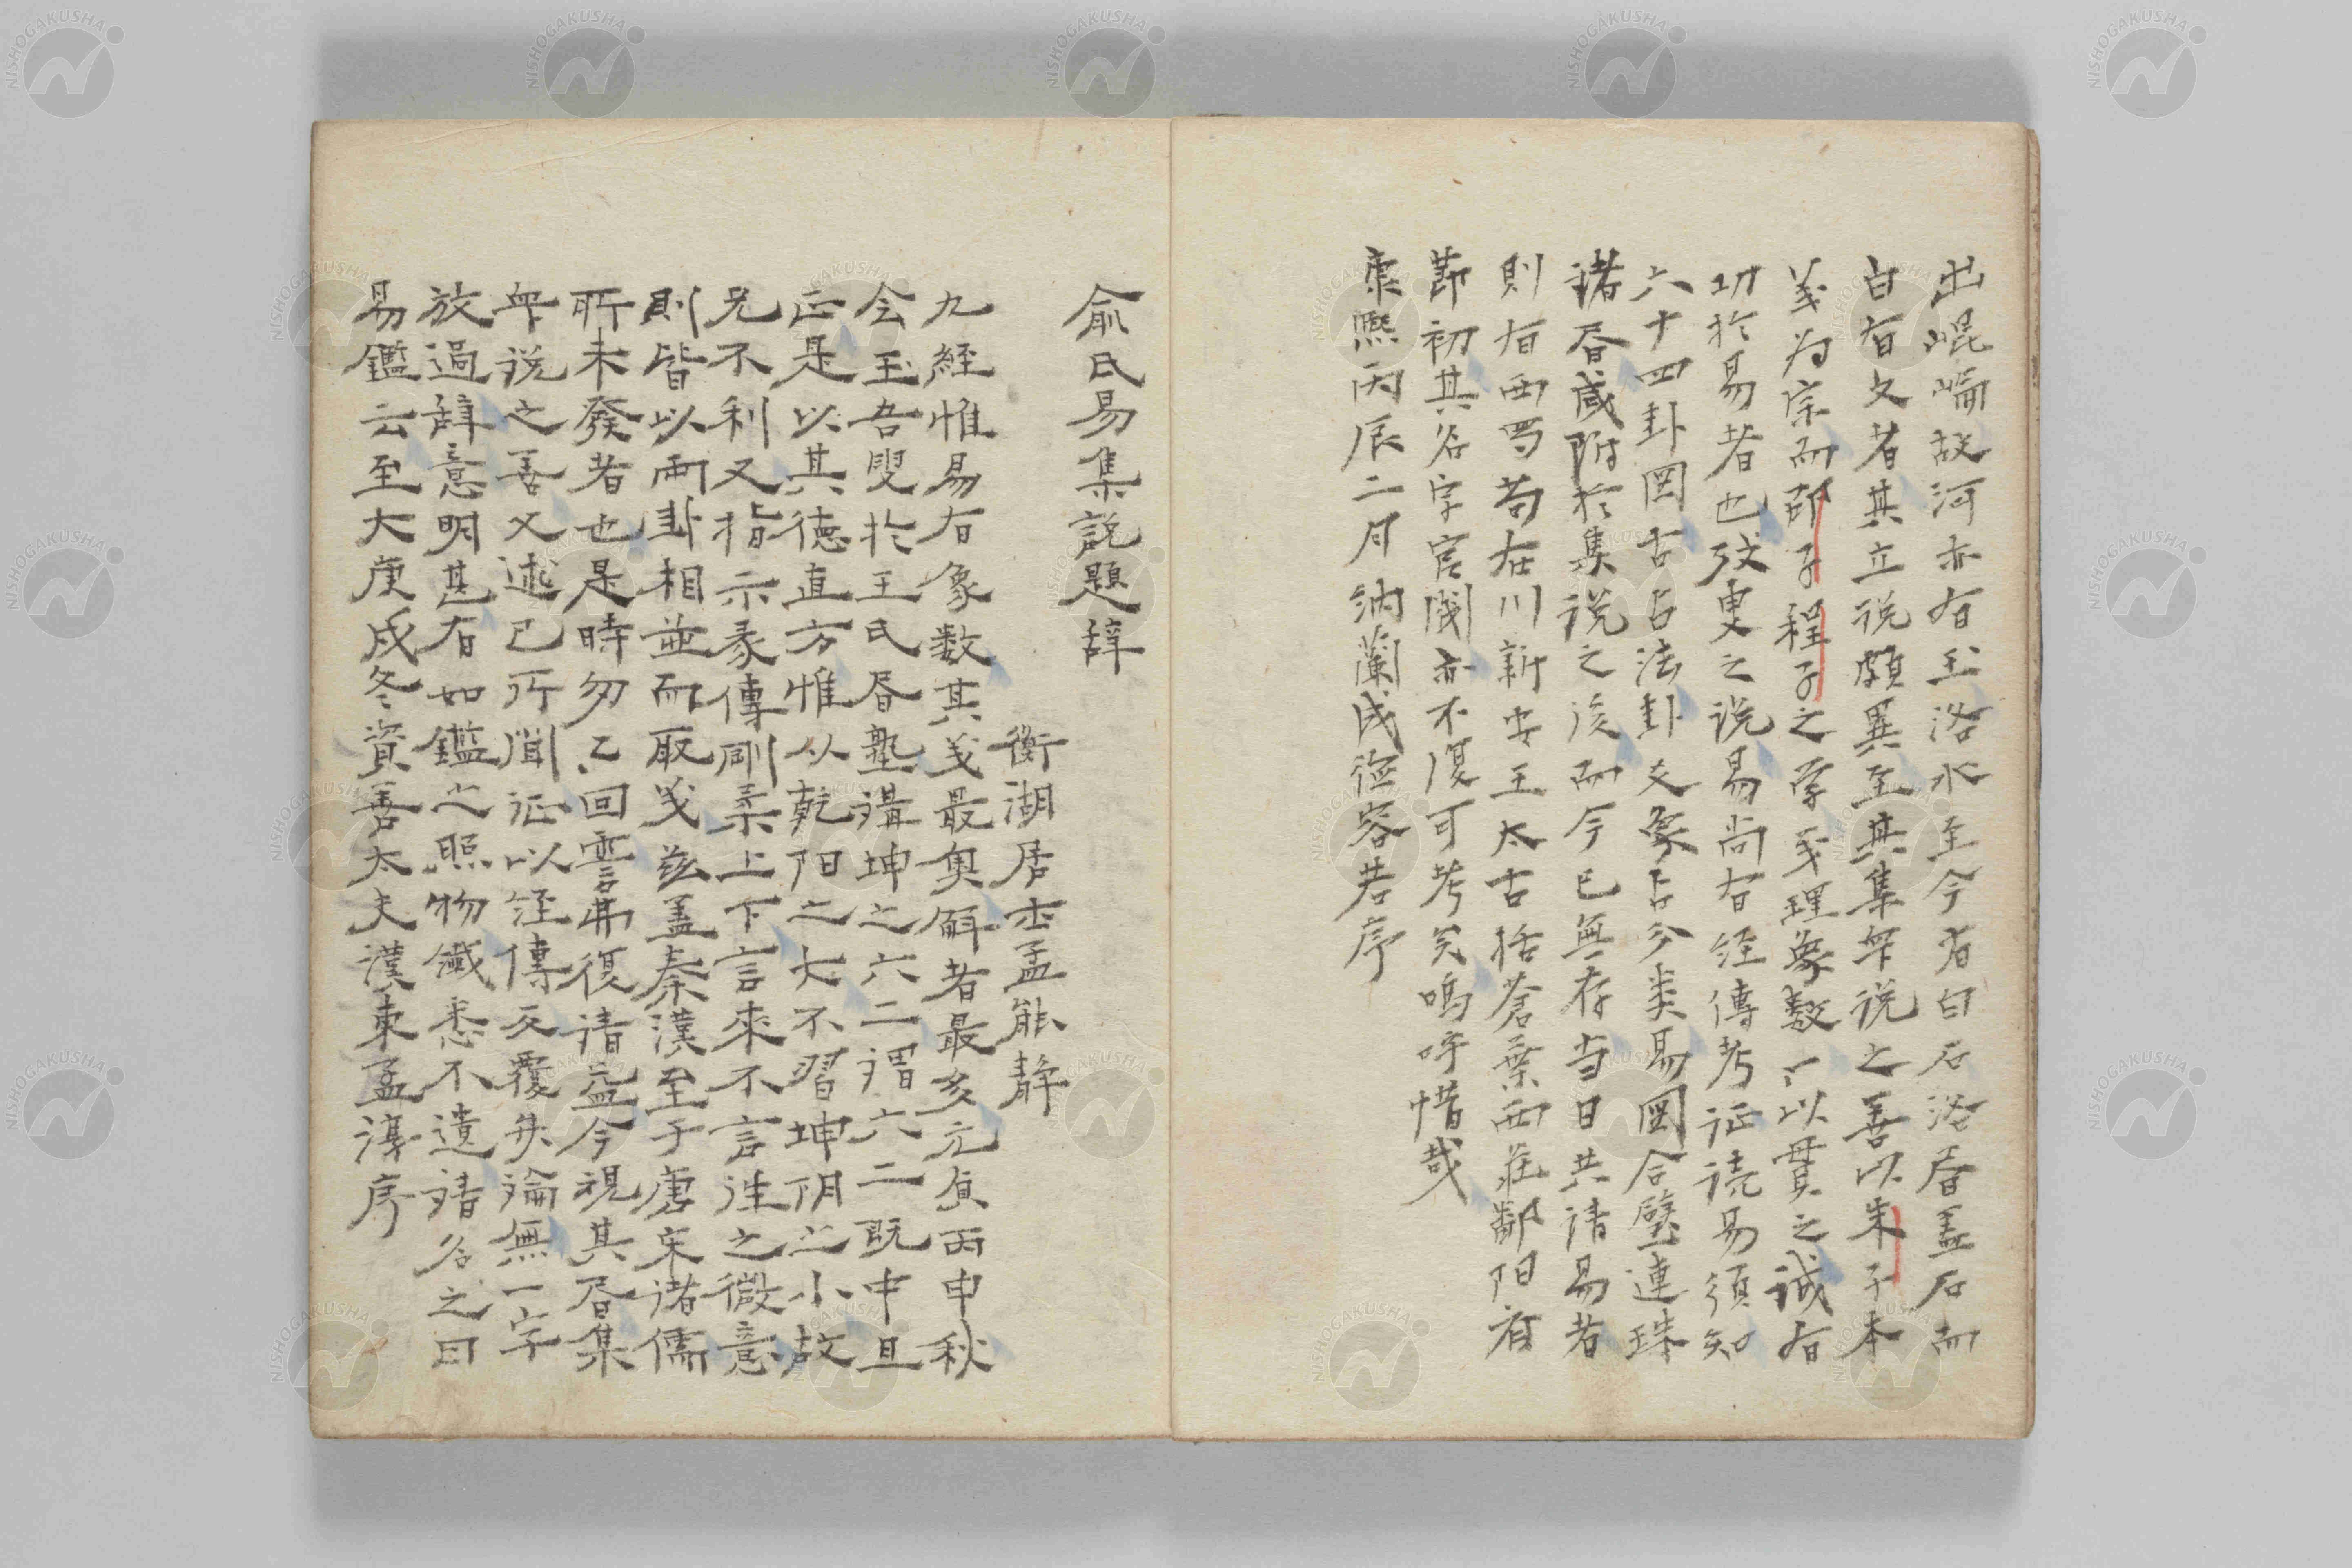 出崐崘故河亦有玉洛水至今有白石洛书盖石而
白有文者其立说頗異至其集眾说之善以朱子本
義为宗而邵子程子之学義理象数一以貫之诚有
功於易者也攷叟之说易尚有经傳考证读易须知
六十四卦図古占法卦爻象占分类易図合璧連珠
诸书咸附於集说之后而今已無存当日共講易者
則有西蜀荀在川新安王太古括蒼葉西莊鄱阳齐
節初其名字官閥亦不復可考矣嗚呼惜哉
康熙丙辰二月纳蘭成德容若序
俞氏易集説題辞
衡湖居士孟能静
九経惟易有象数其義最奥解者最多元貞丙申秋
会玉吾叟於王氏书塾講坤之六二謂六二既中且
正是以其德直方惟以乾阳之大不習坤阴之小故
无不利又指示彖傳剛柔上下言來不言往之微意
則皆以兩卦相並而取義兹盖秦漢至于唐宋诸儒
所未發者也是時匆匆回雲弗復请益今視其书集
眾说之善又述己所聞证以经傳反覆辨論無一字
放過辞意明甚有如鑑之照物纖悉不遺請名之曰
易鑑云至大庚戌冬資善太夫漢東孟淳序
NISHOGAKUSHA